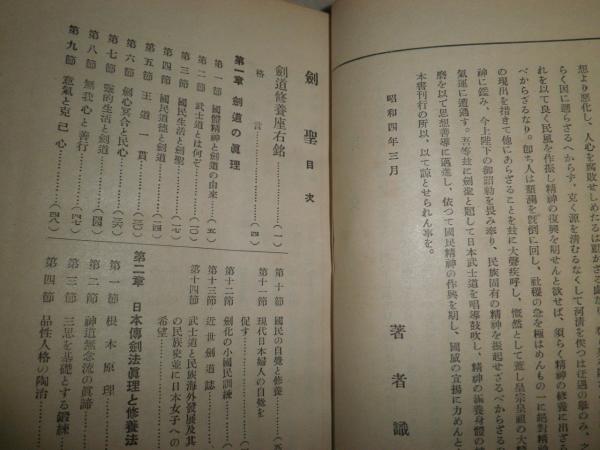 想より惡化し、人心を腐敗せしめたるは
らく因に遡らざるべからず。克く源を淸むるなくして河淸を俟つは迂遇の擧のみ、之
れを以て良く民風を作振し精神の復興を期せんと欲せば、須らく精神の修養に出ざる
べからざるなり。卽ち人は狂瀾を旣倒に回し、社稷の急を極はめんもの一に絕對精神
の現出を措きて他にあらざることを玆に大聲疾呼し、慨然として
神に鑑み、今上陛下の御詔勅を畏み奉り、民族固有の精神を振起せざるべからざるの
氣運に遭遇す。吾等玆に劍聖と題して日本武士道を唱導鼓吹し、精神の涵養身體の
磨を以て思想善導に邁進し、依つて國民精神の作興を期し、國威の宣揚に力めんと
本書刊行の所以、以て諒とせられん事を。
昭和四年三月
著者識
劍聖目次
劍道修養座右銘……(一)
格言……(四)
第一章 劍道の眞理
第一節 國體精神と劍道の由來……(五)
第二節 武士道とは何ぞ……(一〇)
第三節 國民生活と劍聖……(一七)
第四節 國民道德と劍道……(二四)
第五節 王道一貫……(三〇)
第六節 劍心冥合と民心……(三六)
第七節 靈的生活と劍道……(四一)
第八節 無我心と善行……(四四)
第九節 意氣と克己心……(四八)
第十節 國民の自覺と修養……(五
第十一節 現代日本婦人の自覺を
促す……
第十二節 劍化の小國民訓練……
第十三節 近世劍道誌……
第十四節 武士道と民族海外發展及其
の民族史並に日本女子への
希望……
第二章 日本傳劍法眞理と修養法
第一節 根本原理……
第二節 神道無念流の眞諦……
第三節 三思を基礎とする鍛練……
第四節 品性人格の陶冶……